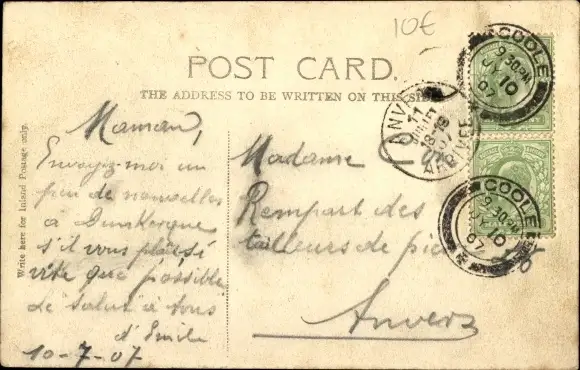 10€
POST CARD.
THE ADDRESS TO BE WRITTEN ON THIS SIDE
Write here for Inland Postage only.
Maman,
Envoyez-moi un
peu de nouvelles
a Dunkerque
s'il vous plait si
vite que possible
Le Salut à tous
d'Emile
10-7-07
Madame
Rempart des
tailleurs de pie
Anvers
GOOLE
9 30PM
JY 10
07
GOOLE
9 30PM
JY 10
07
ANVE
11
18
07
ARRIVEE